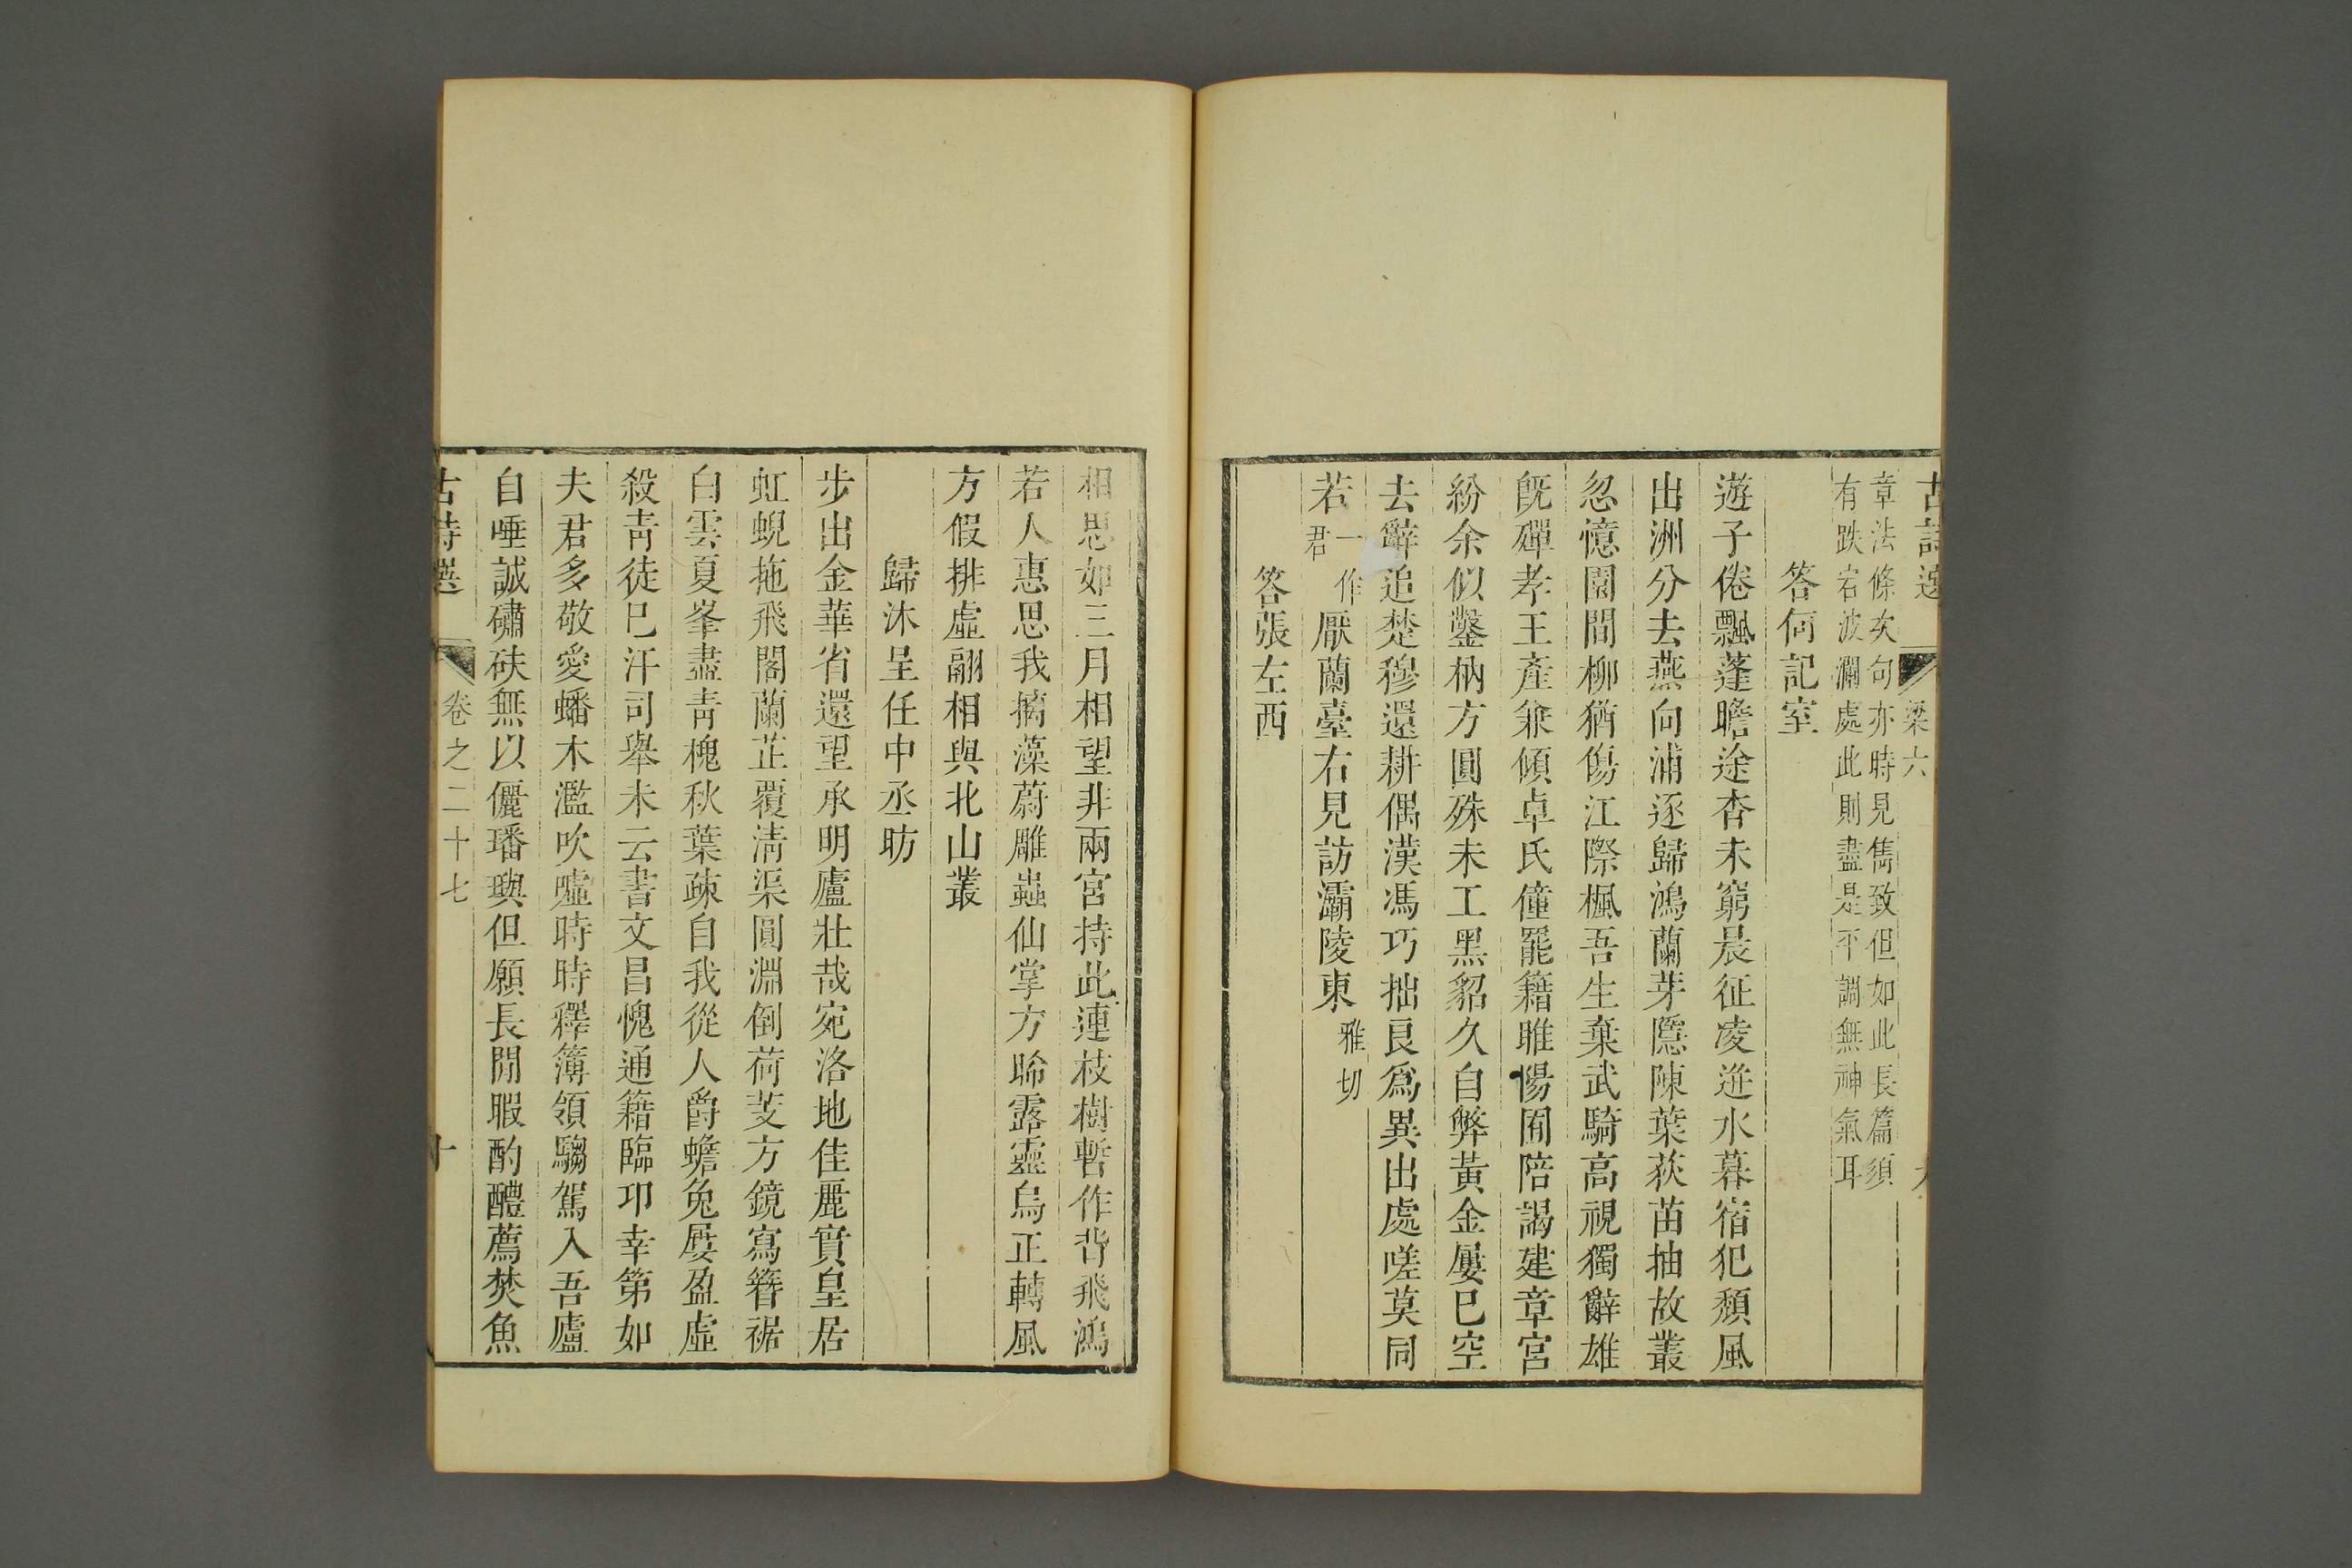 古詩選 梁六
章法條次句亦時見雋致但如此長篇須
有跌宕波瀾處此則盡是平調無神氣耳
答何記室
遊子倦飄蓬瞻途杳未窮晨征凌迸水暮宿犯頹風
出洲分去燕向浦逐歸鴻蘭芽隱陳葉荻苗抽故叢
忽憶園間柳猶傷江際楓吾生棄武騎高視獨辭雄
旣殫孝王產兼傾卓氏僮罷籍睢陽囿陪謁建章宮
紛余似鑿枘方圓殊未工黑貂久自弊黃金屢已空
去辭追楚穆還耕偶漢馮巧拙良爲異出處嗟莫同
若一作君厭蘭臺右見訪灞陵東雅切
答張左西
相思如三月相望非兩宮持此連枝樹暫作背飛鴻
若人惠思我摛藻蔚雕蟲仙掌方晞露靈烏正轉風
方假排虛翮相與北山叢
歸沐呈任中丞昉
步出金華省還望承明廬壯哉宛洛地佳麗實皇居
虹蜺拖飛閣蘭芷覆淸渠圓淵倒荷芰方鏡寫簪裾
白雲夏峯盡靑槐秋葉疎自我從人爵蟾兔屢盈虛
殺靑徒已汗司舉未云書文昌愧通籍臨邛幸第如
夫君多敬愛蟠木濫吹噓時時釋簿領驅駕入吾廬
自唾誠碝砆無以儷璠璵但願長閒暇酌醴薦焚魚
古詩選 卷之二十七 十